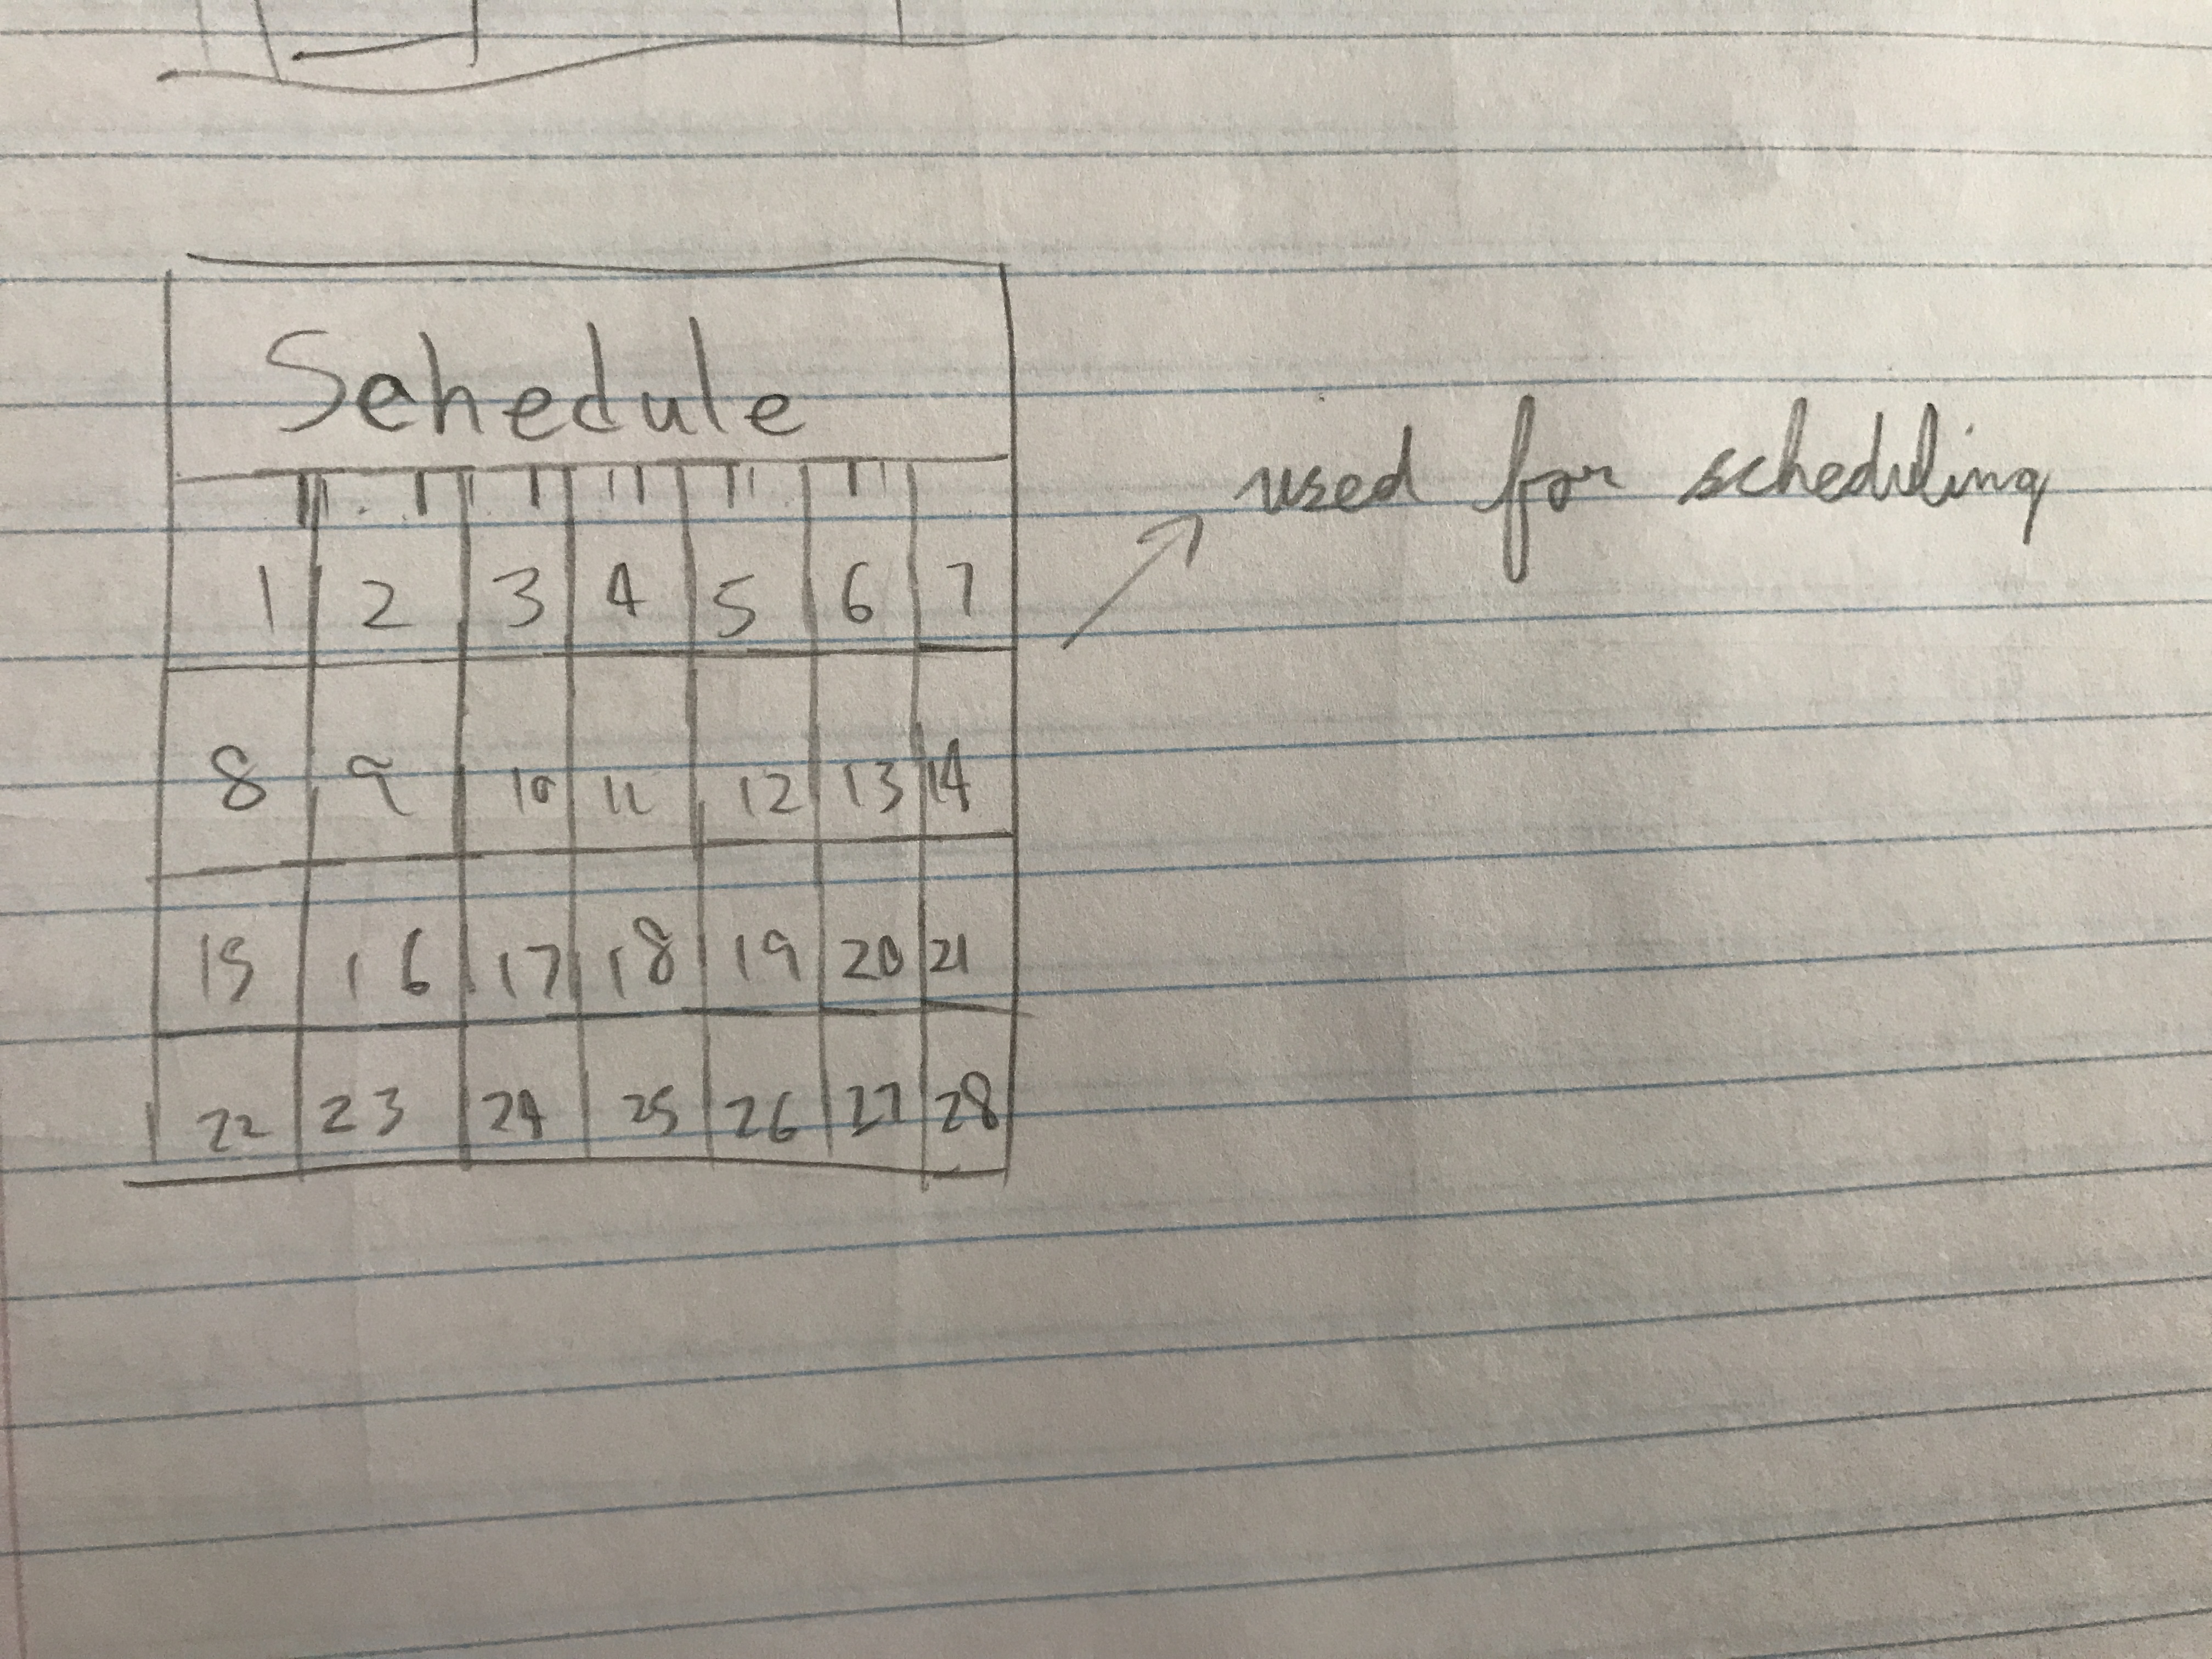 Schedule
1 2 3 4 5 6 7
8 9 10 11 12 13 14
15 16 17 18 19 20 21
22 23 24 25 26 27 28
used for scheduling